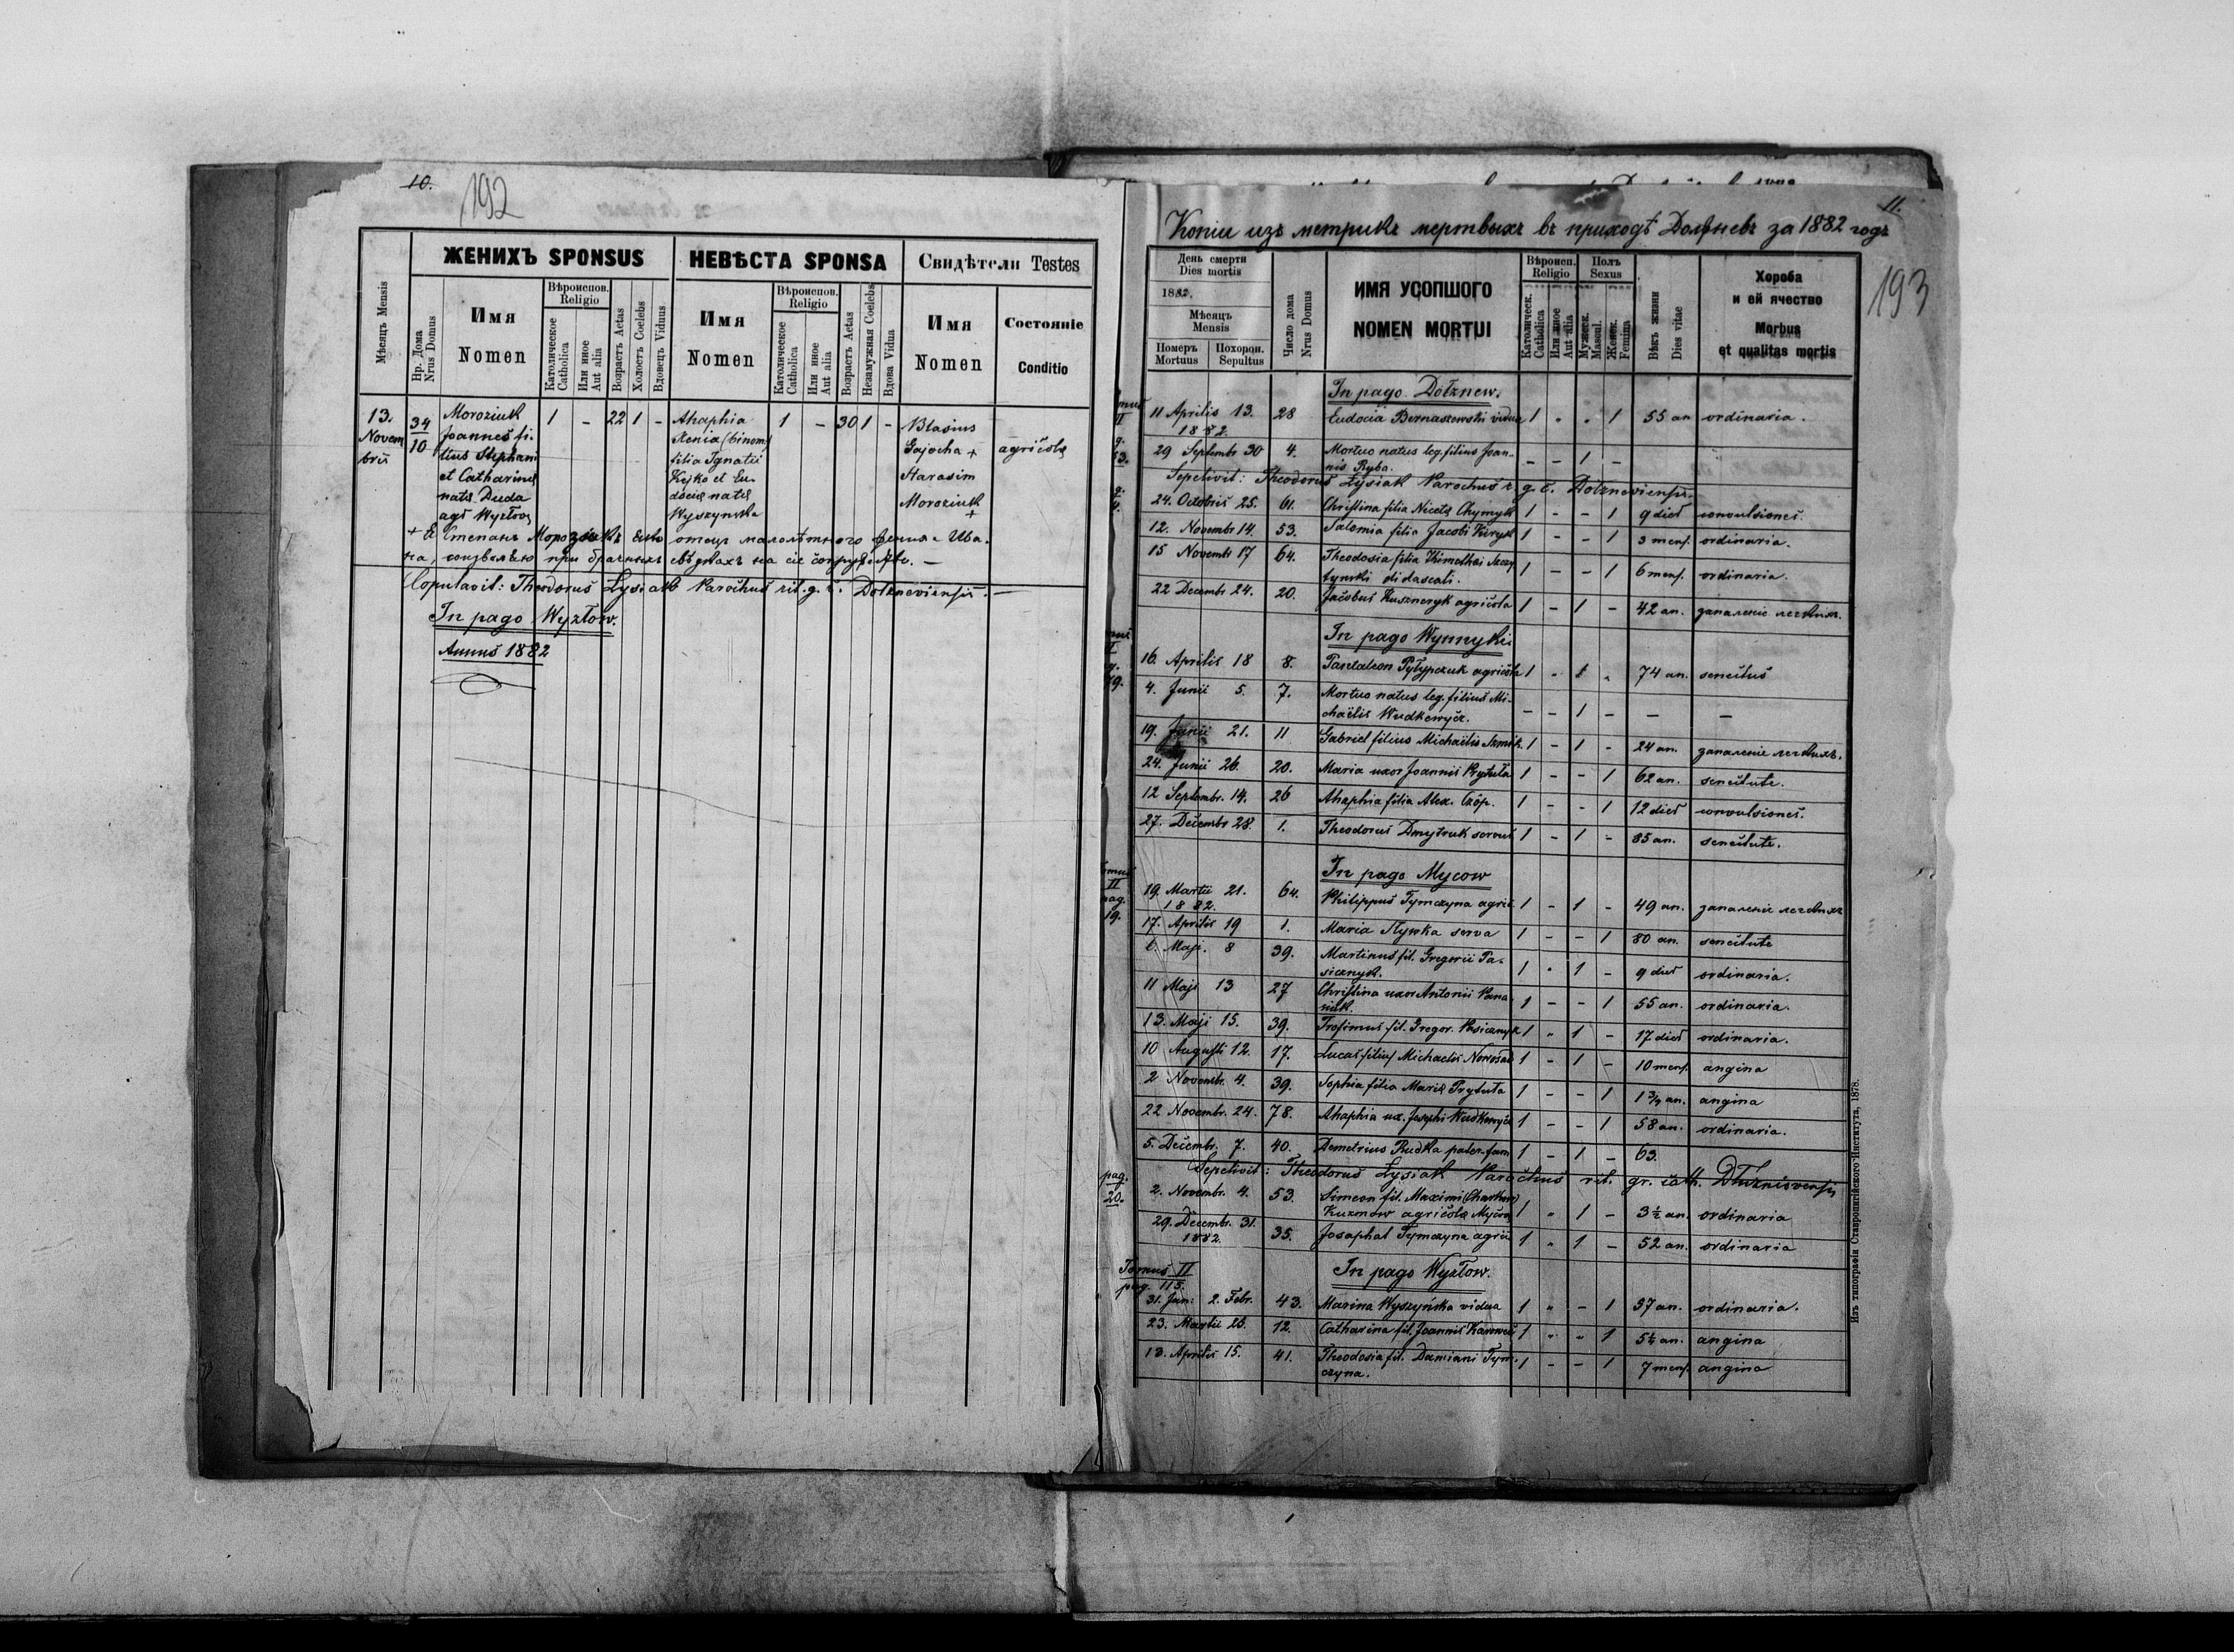 10.
192
ЖЕНИХЪ SPONSUS
НЕВѢСТА SPONSA
Свидѣтели Testes
Мѣсяцъ Mensis
Нр. Дома
Nrus Domus
Имя
Nomen
Вѣроиспов.
Religio
Католическое
Catholica
Или иное
Aut alia
Возрастъ Aetas
Холостъ Coelebs
Вдовецъ Viduus
Имя
Nomen
Вѣроиспов.
Religio
Католическое
Catholica
Или иное
Aut alia
Возрастъ Aetas
Незамужная Coelebs
Вдова Vidua
Имя
Nomen
Состояніе
Conditio
13.
Novem
bris
34
10
Moroziuk
Joannes fi-
lius Stephani
et Catharinæ
natæ Duda
agr Wyzłow
1 - 22 1 -
Ahaphia
Xenia (binom)
filia Ignatii
Kejko et Eu-
dociæ natæ
Wyszynska
1 - 30 1 -
Blasius
Gajocha +
Harasim
Moroziuk
+
agricolæ
Copulavit: Theodorus Łysiak Parochus rit. g. c. Dołzneviensis. —
In pago Wyzłow.
Annus 1882
11.
193
Копіи изъ метрикъ мертвыхъ въ приходѣ Долзневъ за 1882 годъ
День смерти
Dies mortis
1882.
Мѣсяцъ
Mensis
Померъ
Mortuus
Похорон.
Sepultus
Число дома
Nrus Domus
ИМЯ УСОПШОГО
NOMEN MORTUI
Вѣроисп.
Religio
Католическ.
Catholica
Или иное
Aut alia
Полъ
Sexus
Мужеск.
Mascul.
Женск.
Femina
Вѣкъ жизни
Dies vitae
Хороба
и ей ячество
Morbus
et qualitas mortis
In pago Dołznew.
11 Aprilis 13. 28 Eudocia Bernaszewski vidua 1 - - 1 55 an ordinaria.
1882.
29 Septembr 30 4. Mortuo natus leg. filius Joan-
nis Ryba. - - 1 -
Sepelivit: Theodorus Łysiak Parochus r. g. c. Dołzneviensis.
24. Octobris 25. 61. Christina filia Nicetæ Chymyk 1 - - 1 9 dies convulsiones.
12. Novembr 14. 53. Salomia filia Jacobi Kuryk 1 - - 1 3 mens. ordinaria.
15 Novembr 17 64. Theodosia filia Thimothei
didascali. 1 - - 1 6 mens. ordinaria.
22 Decembr 24. 20. Jacobus Kuszneryk agricola 1 - 1 - 42 an. запаленіе легкихъ.
In pago Wynnyki
16. Aprilis 18 8. Pantaleon Pyłypczuk agricola 1 - 1 - 74 an. senectus
4. Junii 5. 7. Mortuo natus leg. filius Mi-
chaëlis Wudkewycz. - - 1 - - -
19. Junii 21. 11 Gabriel filius Michaëlis 1 - 1 - 24 an. запаленіе легкихъ.
24. Junii 26. 20. Maria uxor Joannis Prytuła 1 - - 1 62 an. senectute.
12 Septembr. 14. 26 Ahaphia filia Alex. Czôp. 1 - - 1 12 dies convulsiones.
27. Decembr 28. 1. Theodorus Dmytruk servus 1 - 1 - 85 an. senectute.
In pago Mycow
19. Martii 21. 64. Philippus Tymczyna agric 1 - 1 - 49 an. запаленіе легкихъ
1882.
17. Aprilis 19 1. Maria serva 1 - - 1 80 an. senectute
6. Maji. 8 39. Martinus fil. Gregorii Pa-
sicznyk. 1 - 1 - 9 dies ordinaria.
11 Maji 13 27 Christina uxor Antonii Pana
siuk. 1 - - 1 55 an. ordinaria.
13. Maji 15. 39. Trofimus fil. Gregor. Pasicznyk 1 - 1 - 17 dies ordinaria.
10 Augusti 12. 17. Lucas filius Michaelis Nowosad 1 - 1 - 10 mens. angina
2 Novembr. 4. 39. Sophia filia Mariæ Prytuła 1 - - 1 1 3/4 an. angina
22 Novembr. 24. 78. Ahaphia ux. Josephi Wudkewycz 1 - - 1 58 an. ordinaria.
5. Decembr. 7. 40. Demetrius Rudka pater fam 1 - 1 - 63.
Sepelivit: Theodorus Łysiak Parochus rit. gr. cath. Dłużnioviensis
pag.
20.
2. Novembr. 4. 53. Simeon fil. Maximi (Charkow)
Kuzmow agricolæ Myców 1 - 1 - 3 1/2 an. ordinaria
29. Decembr. 31. 35. Josaphat Tymczyna agric 1 - 1 - 52 an. ordinaria
1882.
Tomus II
pag. 113.
In pago Wyzłow.
31. Jan: 2. Febr. 43. Marina Wyszyńska vidua 1 - - 1 57 an. ordinaria.
23. Martii 25. 12. Catharina fil. Joannis 1 - - 1 5 1/2 an. angina
13. Aprilis 15. 41. Theodosia fil. Damiani Tym-
czyna. 1 - - 1 7 mens. angina
Изъ типографіи Ставропигійского Института, 1878.